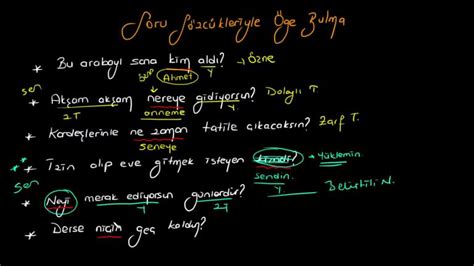 Soru Sözcükleriyle Öge Bulma
* Bu arabayı sana kim aldı? → Özne
Ahmet Y
sen
* Akşam akşam nereye gidiyorsun? Dolaylı T
ZT anneme Y
* Kardeşlerinle ne zaman tatile çıkacaksın? Zarf T.
seneye
* İzin alıp eve gitmek isteyen kimdi? → Yüklemin
sen sendin. Y
* Neyi merak ediyorsun günlerdir? Belirtili N.
Y ZT
* Derse niçin geç kaldın?